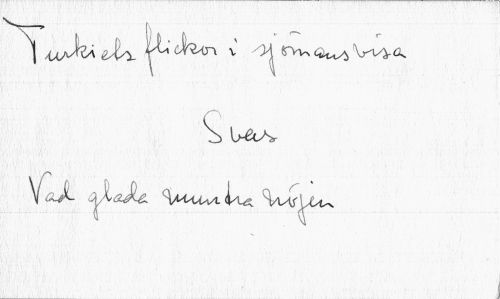 Turkiets flickor i sjömansvisa
Svas
Vad glada muntra nöjen